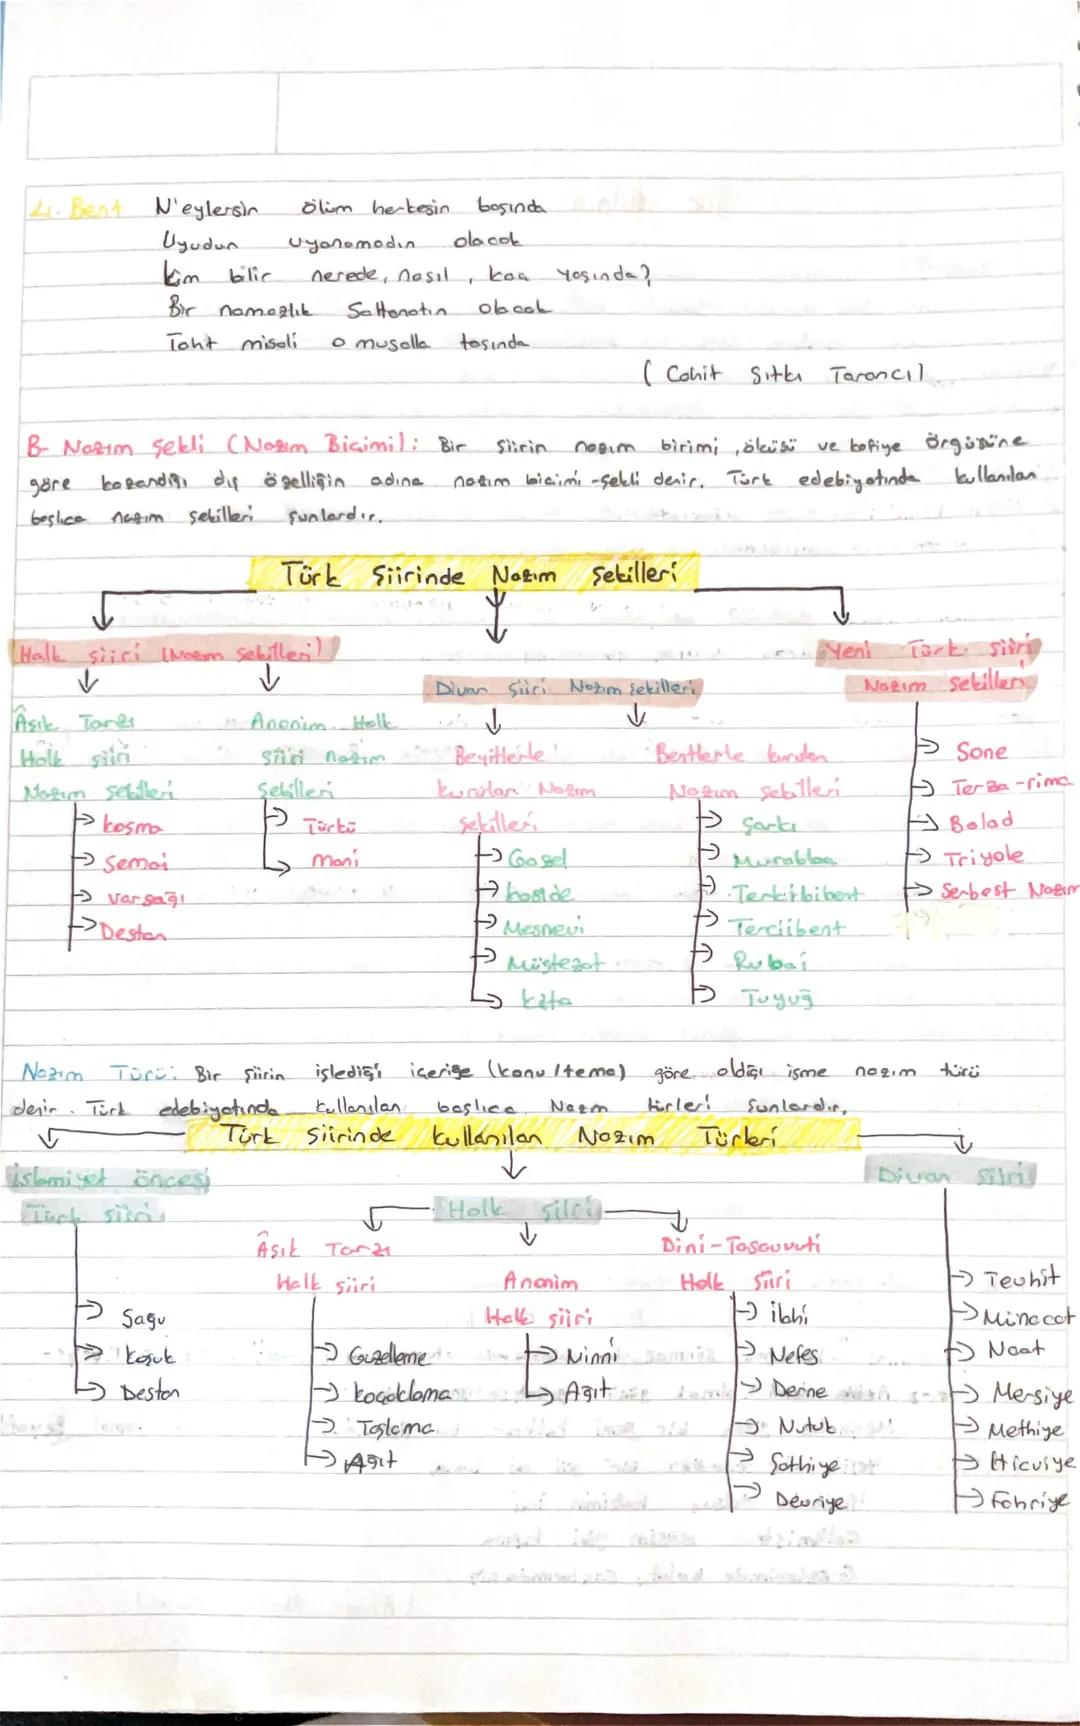 4. Bent N'eylersin ölüm herkesin başında
Uyudun uyanamadın olacak
Kim bilir nerede, nasıl, kaç yaşında?
Bir namazlık Saltanatın olacak
Taht misali o musalla taşında
( Cahit Sıtkı Tarancı )
B- Nazım Şekli (Nazım Biçimi): Bir şiirin nazım birimi, ölçüsü ve kafiye örgüsüne
göre kazandığı dış özelliğin adına nazım biçimi -şekli denir. Türk edebiyatında kullanılan
başlıca nazım şekilleri şunlardır.
Türk Şiirinde Nazım Şekilleri
Halk şiiri (Nazım Şekilleri)
Âşık Tarzı
Halk şiiri
Nazım şekilleri
koşma
Semai
varsağı
Destan
Anonim Halk
Şiiri nazım
Şekilleri
Türkü
mani
Divan Şiiri Nazım Şekilleri
Beyitlerle
kurulan Nazım
şekilleri
Gazel
kaside
Mesnevi
Müstezat
kıta
Bentlerle kurulan
Nazım şekilleri
Şarkı
Murabbaa
Terkibibent
Terciibent
Rubai
Tuyuğ
Yeni Türk şiiri
Nazım şekilleri
Sone
Terza-rima
Balad
Triyole
Serbest Nazım
Nazım Türü: Bir şiirin işlediği içeriğe (konu/tema) göre aldığı isme nazım türü
denir. Türk edebiyatında kullanılan başlıca Nazım türleri şunlardır.
Türk Şiirinde kullanılan Nazım Türleri
İslamiyet öncesi
Türk şiiri
Sagu
Koşuk
Destan
Halk şiiri
Âşık Tarzı
Halk şiiri
Güzelleme
koçaklama
Taşlama
Ağıt
Anonim
Halk şiiri
Ninni
Ağıt
Dini-Tasavvufi
Halk Şiiri
ilahi
Nefes
Deme
Nutuk
Şathiye
Devriye
Divan Şiiri
Tevhit
Münacat
Naat
Mersiye
Methiye
Hicviye
Fahriye